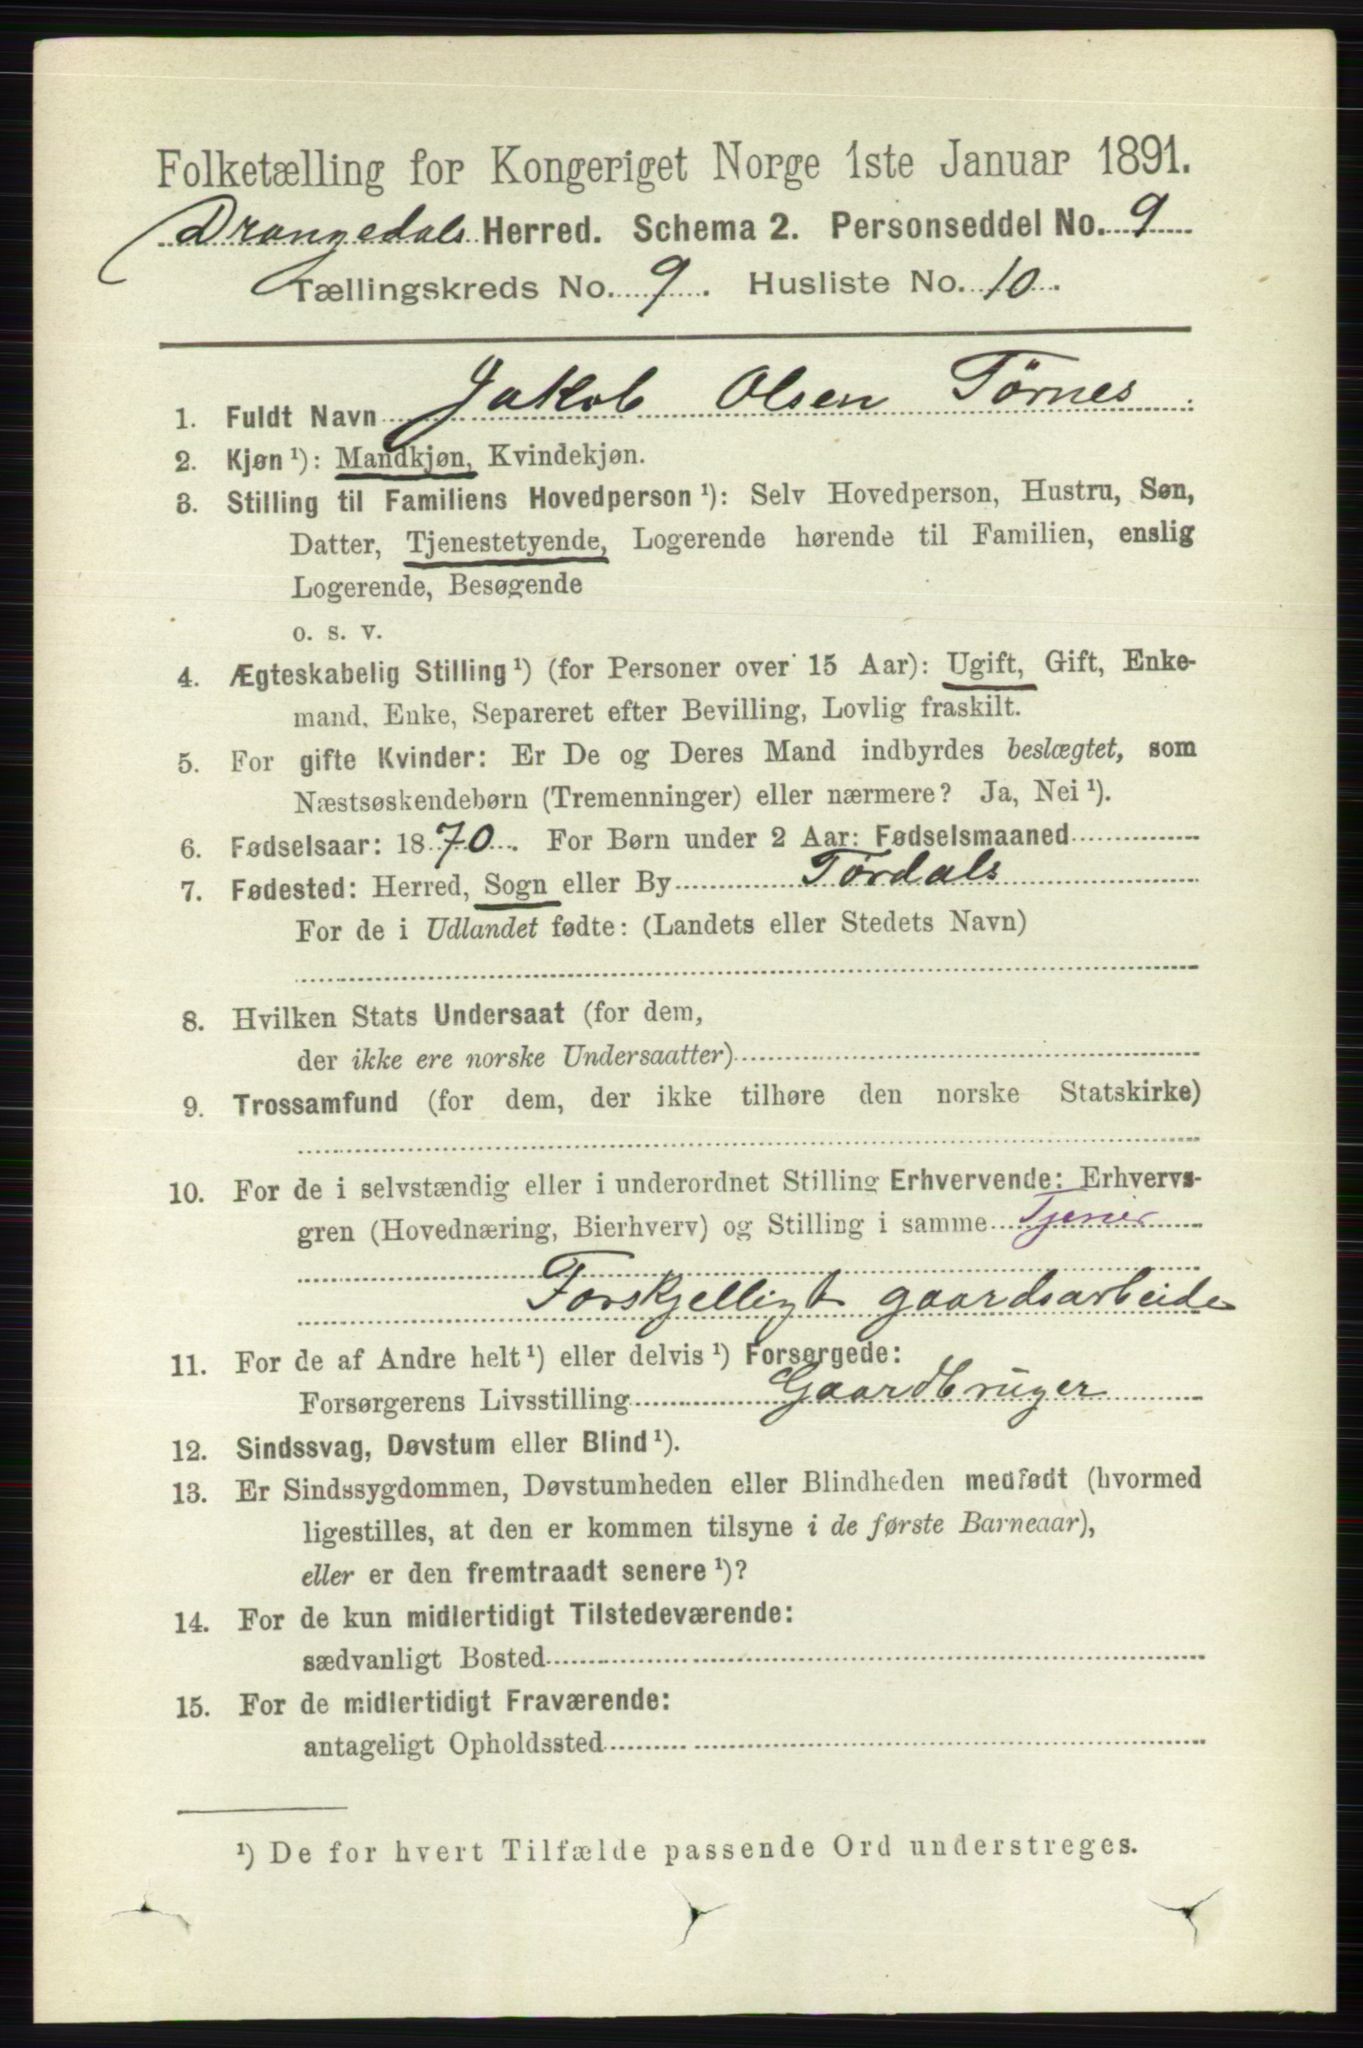 Folketælling for Kongeriget Norge 1ste Januar 1891.
Drangedals Herred. Schema 2. Personseddel No. 9
Tællingskreds No. 9. Husliste No. 10.
1. Fuldt Navn Jakob Olsen Tørnes
2. Kjøn ¹): Mandkjøn, Kvindekjøn.
3. Stilling til Familiens Hovedperson ¹): Selv Hovedperson, Hustru, Søn,
Datter, Tjenestetyende, Logerende hørende til Familien, enslig
Logerende, Besøgende
o. s. v.
4. Ægteskabelig Stilling ¹) (for Personer over 15 Aar): Ugift, Gift, Enke-
mand, Enke, Separeret efter Bevilling, Lovlig fraskilt.
5. For gifte Kvinder: Er De og Deres Mand indbyrdes beslægtet, som
Næstsøskendebørn (Tremenninger) eller nærmere? Ja, Nei ¹).
6. Fødselsaar: 1870. For Børn under 2 Aar: Fødselsmaaned
7. Fødested: Herred, Sogn eller By Tørdals
For de i Udlandet fødte: (Landets eller Stedets Navn)
8. Hvilken Stats Undersaat (for dem,
der ikke ere norske Undersaatter)
9. Trossamfund (for dem, der ikke tilhøre den norske Statskirke)
10. For de i selvstændig eller i underordnet Stilling Erhvervende: Erhvervs-
gren (Hovednæring, Bierhverv) og Stilling i samme Tjener
Forskjelligt gaardsarbeide
11. For de af Andre helt ¹) eller delvis ¹) Forsørgede:
Forsørgerens Livsstilling Gaardbruger
12. Sindssvag, Døvstum eller Blind ¹).
13. Er Sindssygdommen, Døvstumheden eller Blindheden medfødt (hvormed
ligestilles, at den er kommen tilsyne i de første Barneaar),
eller er den fremtraadt senere ¹)?
14. For de kun midlertidigt Tilstedeværende:
sædvanligt Bosted
15. For de midlertidigt Fraværende:
antageligt Opholdssted
¹) De for hvert Tilfælde passende Ord understreges.